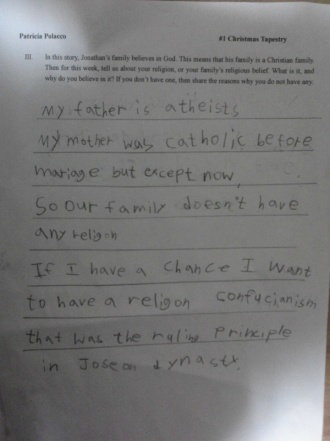 Patricia Polacco #1 Christmas Tapestry
III. In this story, Jonathan's family believes in God. This means that his family is a Christian family.
Then for this week, tell us about your religion, or your family's religious belief. What is it, and
why do you believe in it? If you don't have one, then share the reasons why you do not have any.
My father is atheists
My mother was catholic before
mariage but except now,
So Our family doesn't have
any religon
If I have a chance I want
to have a religon confucianism
that was the ruling principle
in Joseon dynasty.